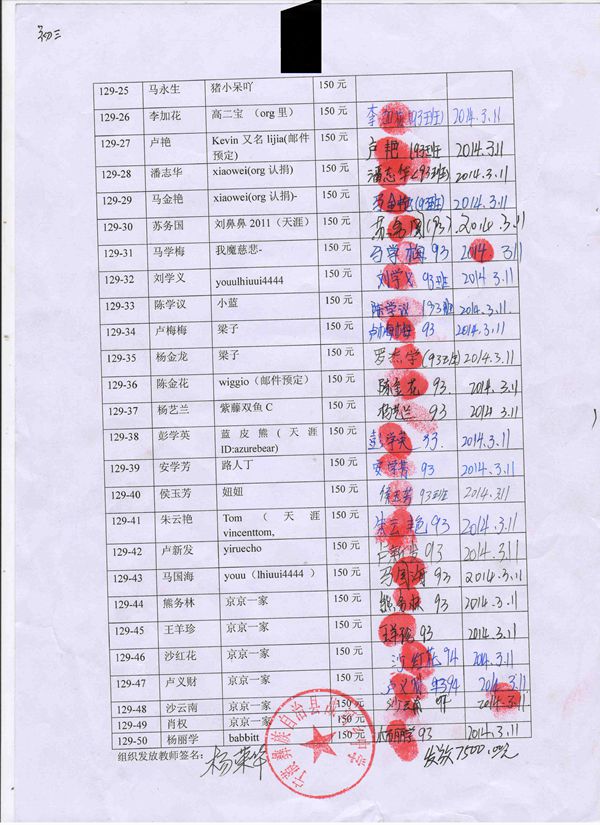 初三
129-25 马永生 猪小呆吖 150 元
129-26 李加花 高二宝 （org 里） 150 元 李加花(93班) 2014.3.11
129-27 卢艳 Kevin 又名 lijia(邮件 150 元 卢艳(93班 2014.3.11
预定)
129-28 潘志华 xiaowei(org 认捐) 150 元 潘志华(93班) 2014.3.11
129-29 马金艳 xiaowei(org 认捐)- 150 元 马金艳(93班) 2014.3.11
129-30 苏务国 刘鼻鼻 2011（天涯） 150 元 苏务国(93) 2014.3.11
129-31 马学梅 我魔慈悲- 150 元 马学梅 93 2014 3.11
129-32 刘学义 youulhiuui4444 150 元 刘学义 93班 2014.3.11
129-33 陈学议 小蓝 150 元 陈学议 (93班 2014.3.11.
129-34 卢梅梅 梁子 150 元 卢梅梅 93 2014.3.11
129-35 杨金龙 梁子 150 元 罗杰学(93班) 2014.3.11
129-36 陈金花 wiggio（邮件预定） 150 元 陈金花 93. 2014.3.11
129-37 杨艺兰 紫藤双鱼 C 150 元 杨艺兰 93 2014 3.11
129-38 彭学英 蓝 皮 熊 ( 天 涯 150 元 彭学英 93. 2014.3.11
ID:azurebear)
129-39 安学芳 路人丁 150 元 安学芳 93 2014.3.11
129-40 侯玉芳 妞妞 150 元 侯玉芳 93班 2014.3.11
129-41 朱云艳 Tom （ 天 涯 150 元 朱云艳 93 2014.3.11
vincenttom,
129-42 卢新发 yiruecho 150 元 卢新发 93 2014.3.11
129-43 马国海 youu（lhiuui4444 ） 150 元 马国海 93 2014.3.11
129-44 熊务林 京京一家 150 元 熊务林 93 2014.3.11
129-45 王羊珍 京京一家 150 元 王羊珍 93 2014.3.11
129-46 沙红花 京京一家 150 元 沙红花 94 2014.3.11
129-47 卢义财 京京一家 150 元 卢义财 94 2014 3.11
129-48 沙云南 京京一家 150 元 沙云南 2014.3.11
129-49 肖权 京京一家 150元
129-50 杨丽学 babbitt 150 元 杨丽学 93 2014.3.11
组织发放教师签名： 杨荣华 发放7500.00元
宁蒗彝族自治县 中学